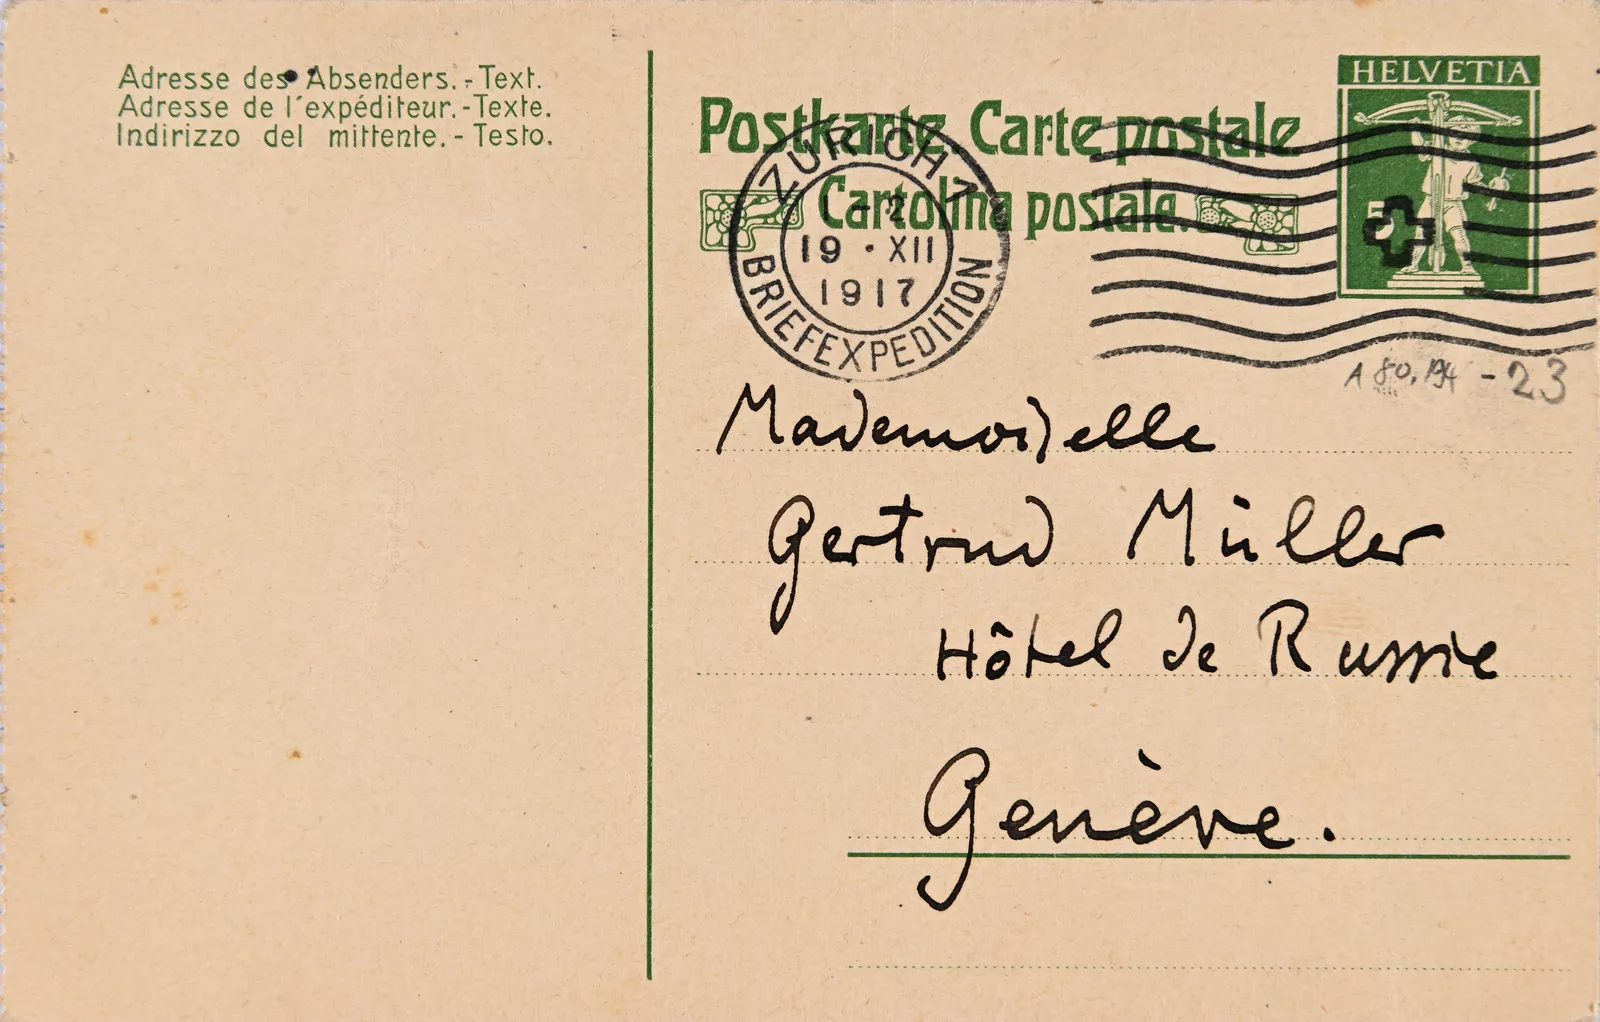 Adresse des Absenders.-Text.
Adresse de l'expéditeur.-Texte.
Indirizzo del mittente.-Testo.
Postkarte. Carte postale.
Cartolina postale.
HELVETIA
5
ZÜRICH 1
1-2
19 · XII
1917
BRIEFEXPEDITION
A 80.194 - 23
Mademoiselle
Gertrud Müller
Hôtel de Russie
Genève.